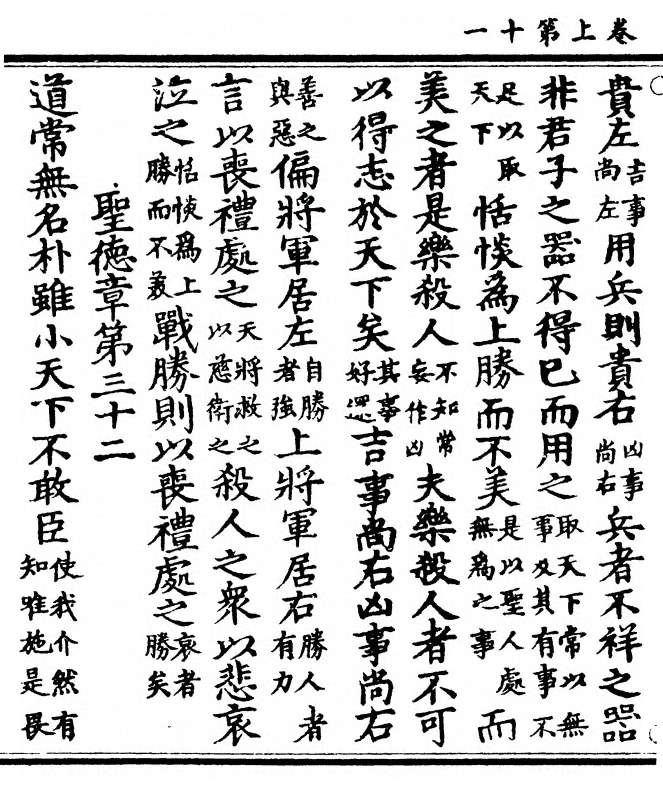 卷上第十一
貴左吉事尚左用兵則貴右凶事尚右兵者不祥之器
非君子之器不得已而用之取天下常以無事及其有事不
足以取天下恬惔為上勝而不美是以聖人處無為之事而
美之者是樂殺人不知常妄作凶夫樂殺人者不可
以得志於天下矣其事好還吉事尚右凶事尚右
善之與惡偏將軍居左自勝者強上將軍居右勝人者有力
言以喪禮處之天將救之以慈衛之殺人之衆以悲哀
泣之恬惔為上勝而不羙戰勝則以喪禮處之哀者勝矣
聖德章第三十二
道常無名朴雖小天下不敢臣使我介然有知唯施是畏